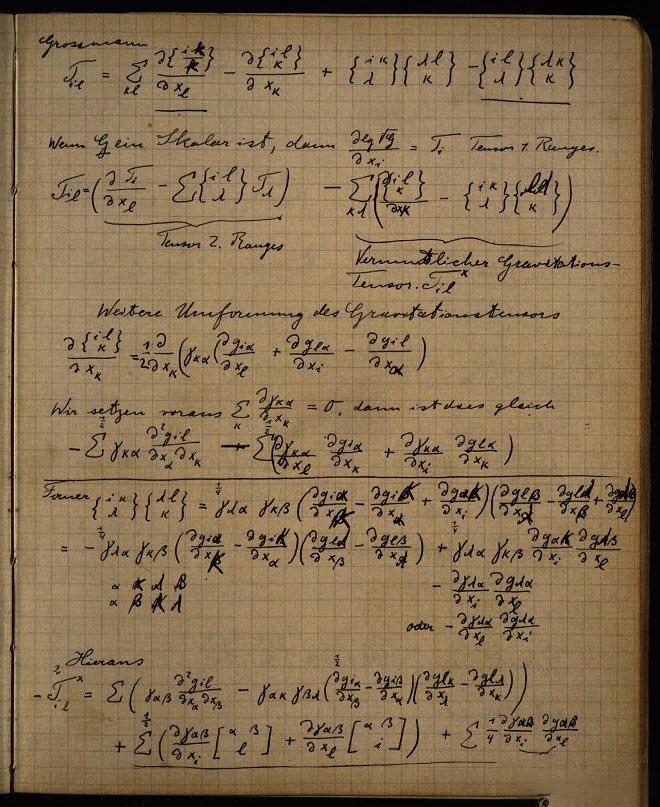 Grossmann
T_il = Σ_κl ∂{i κ / κ}/∂x_l − ∂{i l / κ}/∂x_κ + {i κ / λ}{λ l / κ} − {i l / λ}{λ κ / κ}
Wenn G ein Skalar ist, dann ∂lg√G/∂x_i = T_i Tensor 1. Ranges.
T_il = (∂T_i/∂x_l − Σ{i l / λ}T_λ) − Σ_κλ(∂{i l / κ}/∂x_κ − {i κ / λ}{λ l / κ})
Tensor 2. Ranges
Vermutlicher Gravitations-
Tensor. T_il^x
Weitere Umformung des Gravitationstensors
∂{i l / κ}/∂x_κ = 1/2 ∂/∂x_κ (γ_κα (∂g_iα/∂x_l + ∂g_lα/∂x_i − ∂g_il/∂x_α)
Wir setzen voraus Σ_κ ∂γ_κα/∂x_κ = 0, dann ist dies gleich
− 1/2 Σ γ_κα ∂²g_il/∂x_α∂x_κ + 1/2 Σ(∂γ_κα/∂x_l ∂g_iα/∂x_κ + ∂γ_κα/∂x_i ∂g_lα/∂x_κ)
Ferner {i κ / λ}{λ l / κ} = 1/4 γ_λα γ_κβ (∂g_iα/∂x_κ − ∂g_iκ/∂x_α + ∂g_ακ/∂x_i)(∂g_lβ/∂x_λ − ∂g_lλ/∂x_β + ∂g_λβ/∂x_l)
= − 1/4 γ_λα γ_κβ (∂g_iα/∂x_κ − ∂g_iκ/∂x_α)(∂g_lλ/∂x_β − ∂g_lβ/∂x_λ) + 1/4 γ_λα γ_κβ ∂g_ακ/∂x_i ∂g_λβ/∂x_l
α κ λ β
α β κ λ
− ∂γ_λα/∂x_i ∂g_λα/∂x_l
oder − ∂γ_λα/∂x_l ∂g_λα/∂x_i
Hieraus
− 2 T_il^x = Σ(γ_αβ ∂²g_il/∂x_α∂x_β − 1/2 γ_ακ γ_βλ (∂g_iα/∂x_β − ∂g_iβ/∂x_α)(∂g_lκ/∂x_λ − ∂g_lλ/∂x_κ))
+ 1/2 Σ(∂γ_αβ/∂x_i [α β / l] + ∂γ_αβ/∂x_l [α β / i]) + Σ 1/4 ∂γ_αβ/∂x_i ∂g_αβ/∂x_l